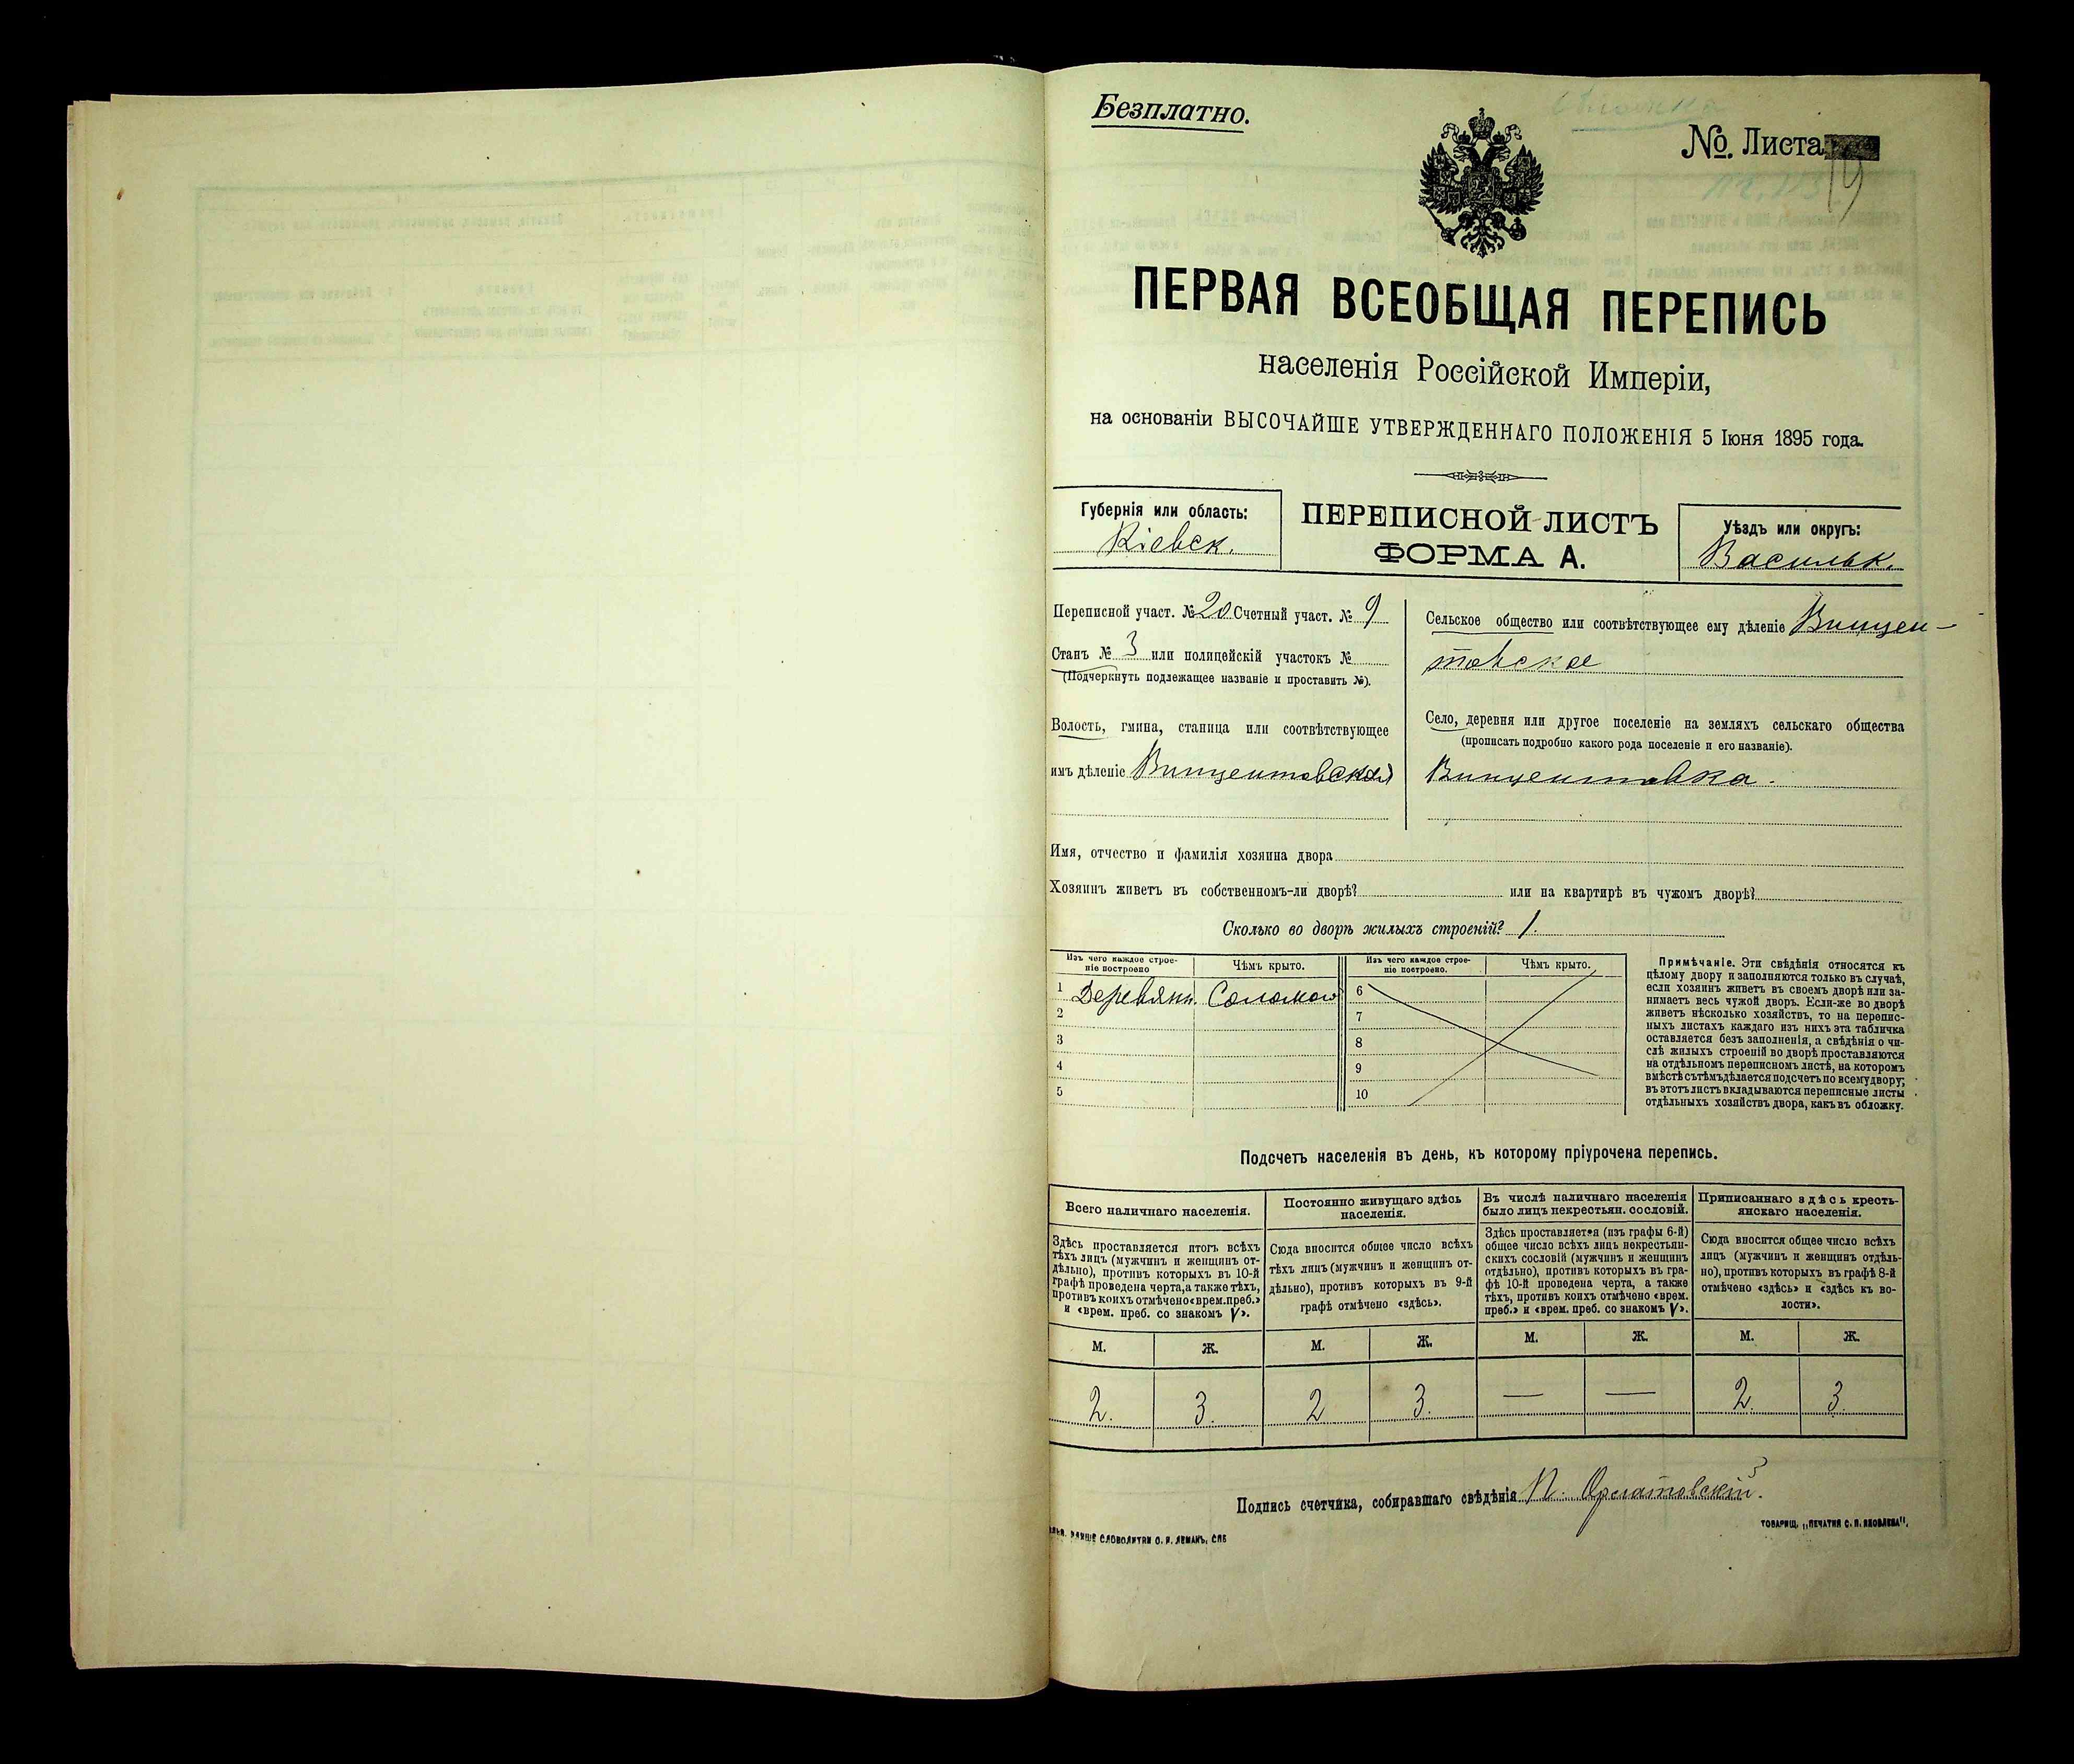 Безплатно.
№. Листа
ПЕРВАЯ ВСЕОБЩАЯ ПЕРЕПИСЬ
населенія Россійской Имперіи,
на основаніи ВЫСОЧАЙШЕ УТВЕРЖДЕННАГО ПОЛОЖЕНІЯ 5 Іюня 1895 года.
Губернія или область:
Кіевск.
ПЕРЕПИСНОЙ ЛИСТЪ
ФОРМА А.
Уѣздъ или округъ:
Васильк.
Переписной участ. № 20 Счетный участ. № 9
Станъ № 3 или полицейскій участокъ №
(Подчеркнуть подлежащее названіе и проставить №).
Волость, гмина, станица или соотвѣтствующее
имъ дѣленіе Винцентовская
Сельское общество или соотвѣтствующее ему дѣленіе Винцен-
товское
Село, деревня или другое поселеніе на земляхъ сельскаго общества
(прописать подробно какого рода поселеніе и его названіе).
Винцентовка.
Имя, отчество и фамилія хозяина двора
Хозяинъ живетъ въ собственномъ-ли дворѣ? или на квартирѣ въ чужомъ дворѣ?
Сколько во дворѣ жилыхъ строеній? 1.
Изъ чего каждое строе-
ніе построено
Чѣмъ крыто.
1 Деревянн. Соломой
2
3
4
5
Изъ чего каждое строе-
ніе построено.
Чѣмъ крыто.
6
7
8
9
10
Примѣчаніе. Эти свѣдѣнія относятся къ
цѣлому двору и заполняются только въ случаѣ,
если хозяинъ живетъ въ своемъ дворѣ или за-
нимаетъ весь чужой дворъ. Если-же во дворѣ
живетъ нѣсколько хозяйствъ, то на перепис-
ныхъ листахъ каждаго изъ нихъ эта табличка
оставляется безъ заполненія, а свѣдѣнія о чи-
слѣ жилыхъ строеній во дворѣ проставляются
на отдѣльномъ переписномъ листѣ, на которомъ
вмѣстѣ съ тѣмъ дѣлается подсчетъ по всему двору;
въ этотъ листъ вкладываются переписные листы
отдѣльныхъ хозяйствъ двора, какъ въ обложку.
Подсчетъ населенія въ день, къ которому пріурочена перепись.
Всего наличнаго населенія.
Здѣсь проставляется итогъ всѣхъ
тѣхъ лицъ (мужчинъ и женщинъ от-
дѣльно), противъ которыхъ въ 10-й
графѣ проведена черта, а также тѣхъ,
противъ коихъ отмѣчено «врем. преб.»
и «врем. преб. со знакомъ V».
М. Ж.
2. 3.
Постоянно живущаго здѣсь
населенія.
Сюда вносится общее число всѣхъ
тѣхъ лицъ (мужчинъ и женщинъ от-
дѣльно), противъ которыхъ въ 9-й
графѣ отмѣчено «здѣсь».
М. Ж.
2 3.
Въ числѣ наличнаго населенія
было лицъ некрестьян. сословій.
Здѣсь проставляется (изъ графы 6-й)
общее число всѣхъ лицъ некрестьян-
скихъ сословій (мужчинъ и женщинъ
отдѣльно), противъ которыхъ въ гра-
фѣ 10-й проведена черта, а также
тѣхъ, противъ коихъ отмѣчено «врем.
преб.» и «врем. преб. со знакомъ V».
М. Ж.
— —
Приписаннаго здѣсь кресть-
янскаго населенія.
Сюда вносится общее число всѣхъ
лицъ (мужчинъ и женщинъ отдѣль-
но), противъ которыхъ въ графѣ 8-й
отмѣчено «здѣсь» и «здѣсь къ во-
лости».
М. Ж.
2. 3.
Подпись счетчика, собиравшаго свѣдѣнія П.
СЛОВОЛИТНИ О. И. ЛЕМАНЪ, СПБ
ТОВАРИЩ. „ПЕЧАТНЯ С. П. ЯКОВЛЕВА".